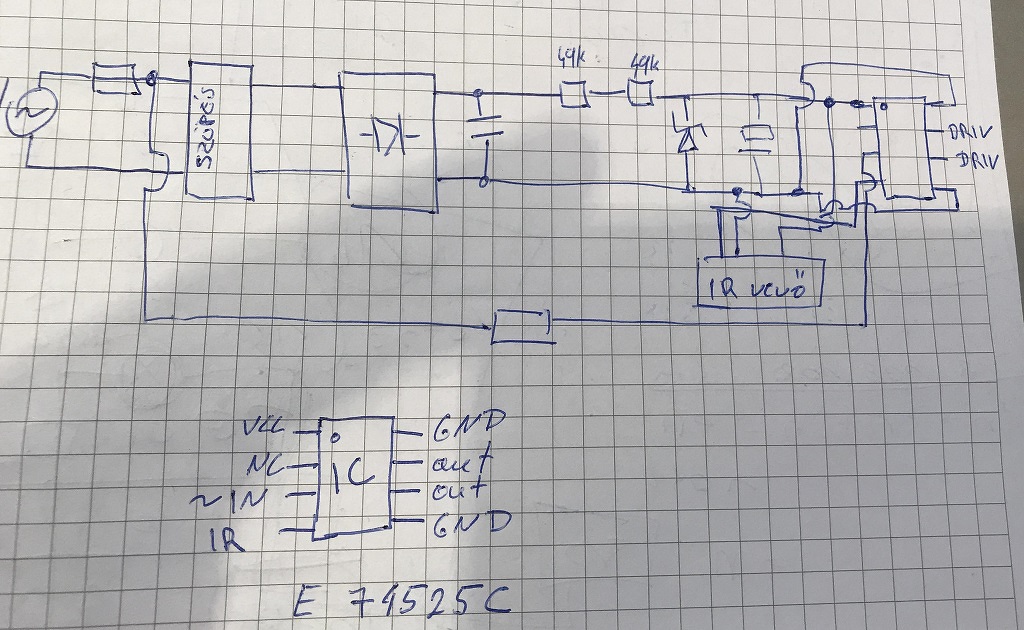 49k 49k
SZŰRÉS
DRIV
DRIV
IR VEVŐ
VCC GND
NC out
~IN out
IR GND
IC
E 74525C